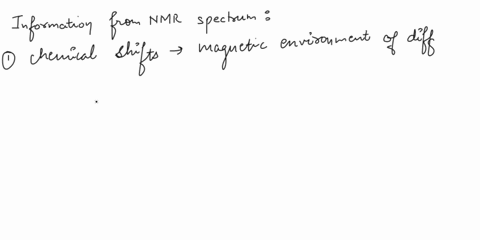 Information from NMR spectrum :
① chemical shifts → magnetic environment of diff